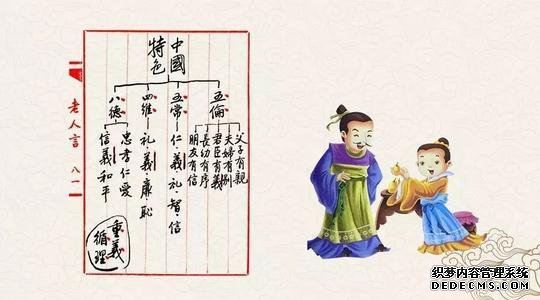 中國
特色
五倫
父子有親
夫婦有別
君臣有義
長幼有序
朋友有信
五常
仁義礼智信
四維
礼義廉恥
八德
忠孝仁愛
信義和平
重義
循理
老人言 八一
织梦内容管理系统
DEDECMS.COM